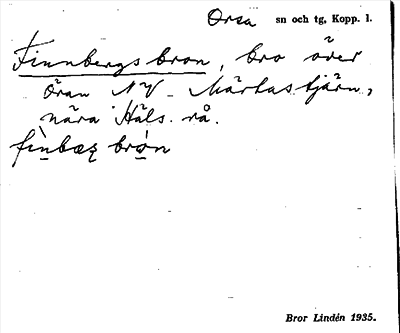 Orsa sn och tg, Kopp. l.
Finnbergsbron, bro över
öran NV Märtastjärn,
nära Häls. rå.
fìnbæʐ brón
Bror Lindén 1935.